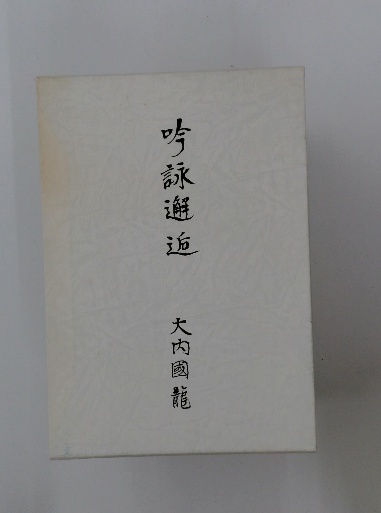 吟詠邂逅
大内國龍